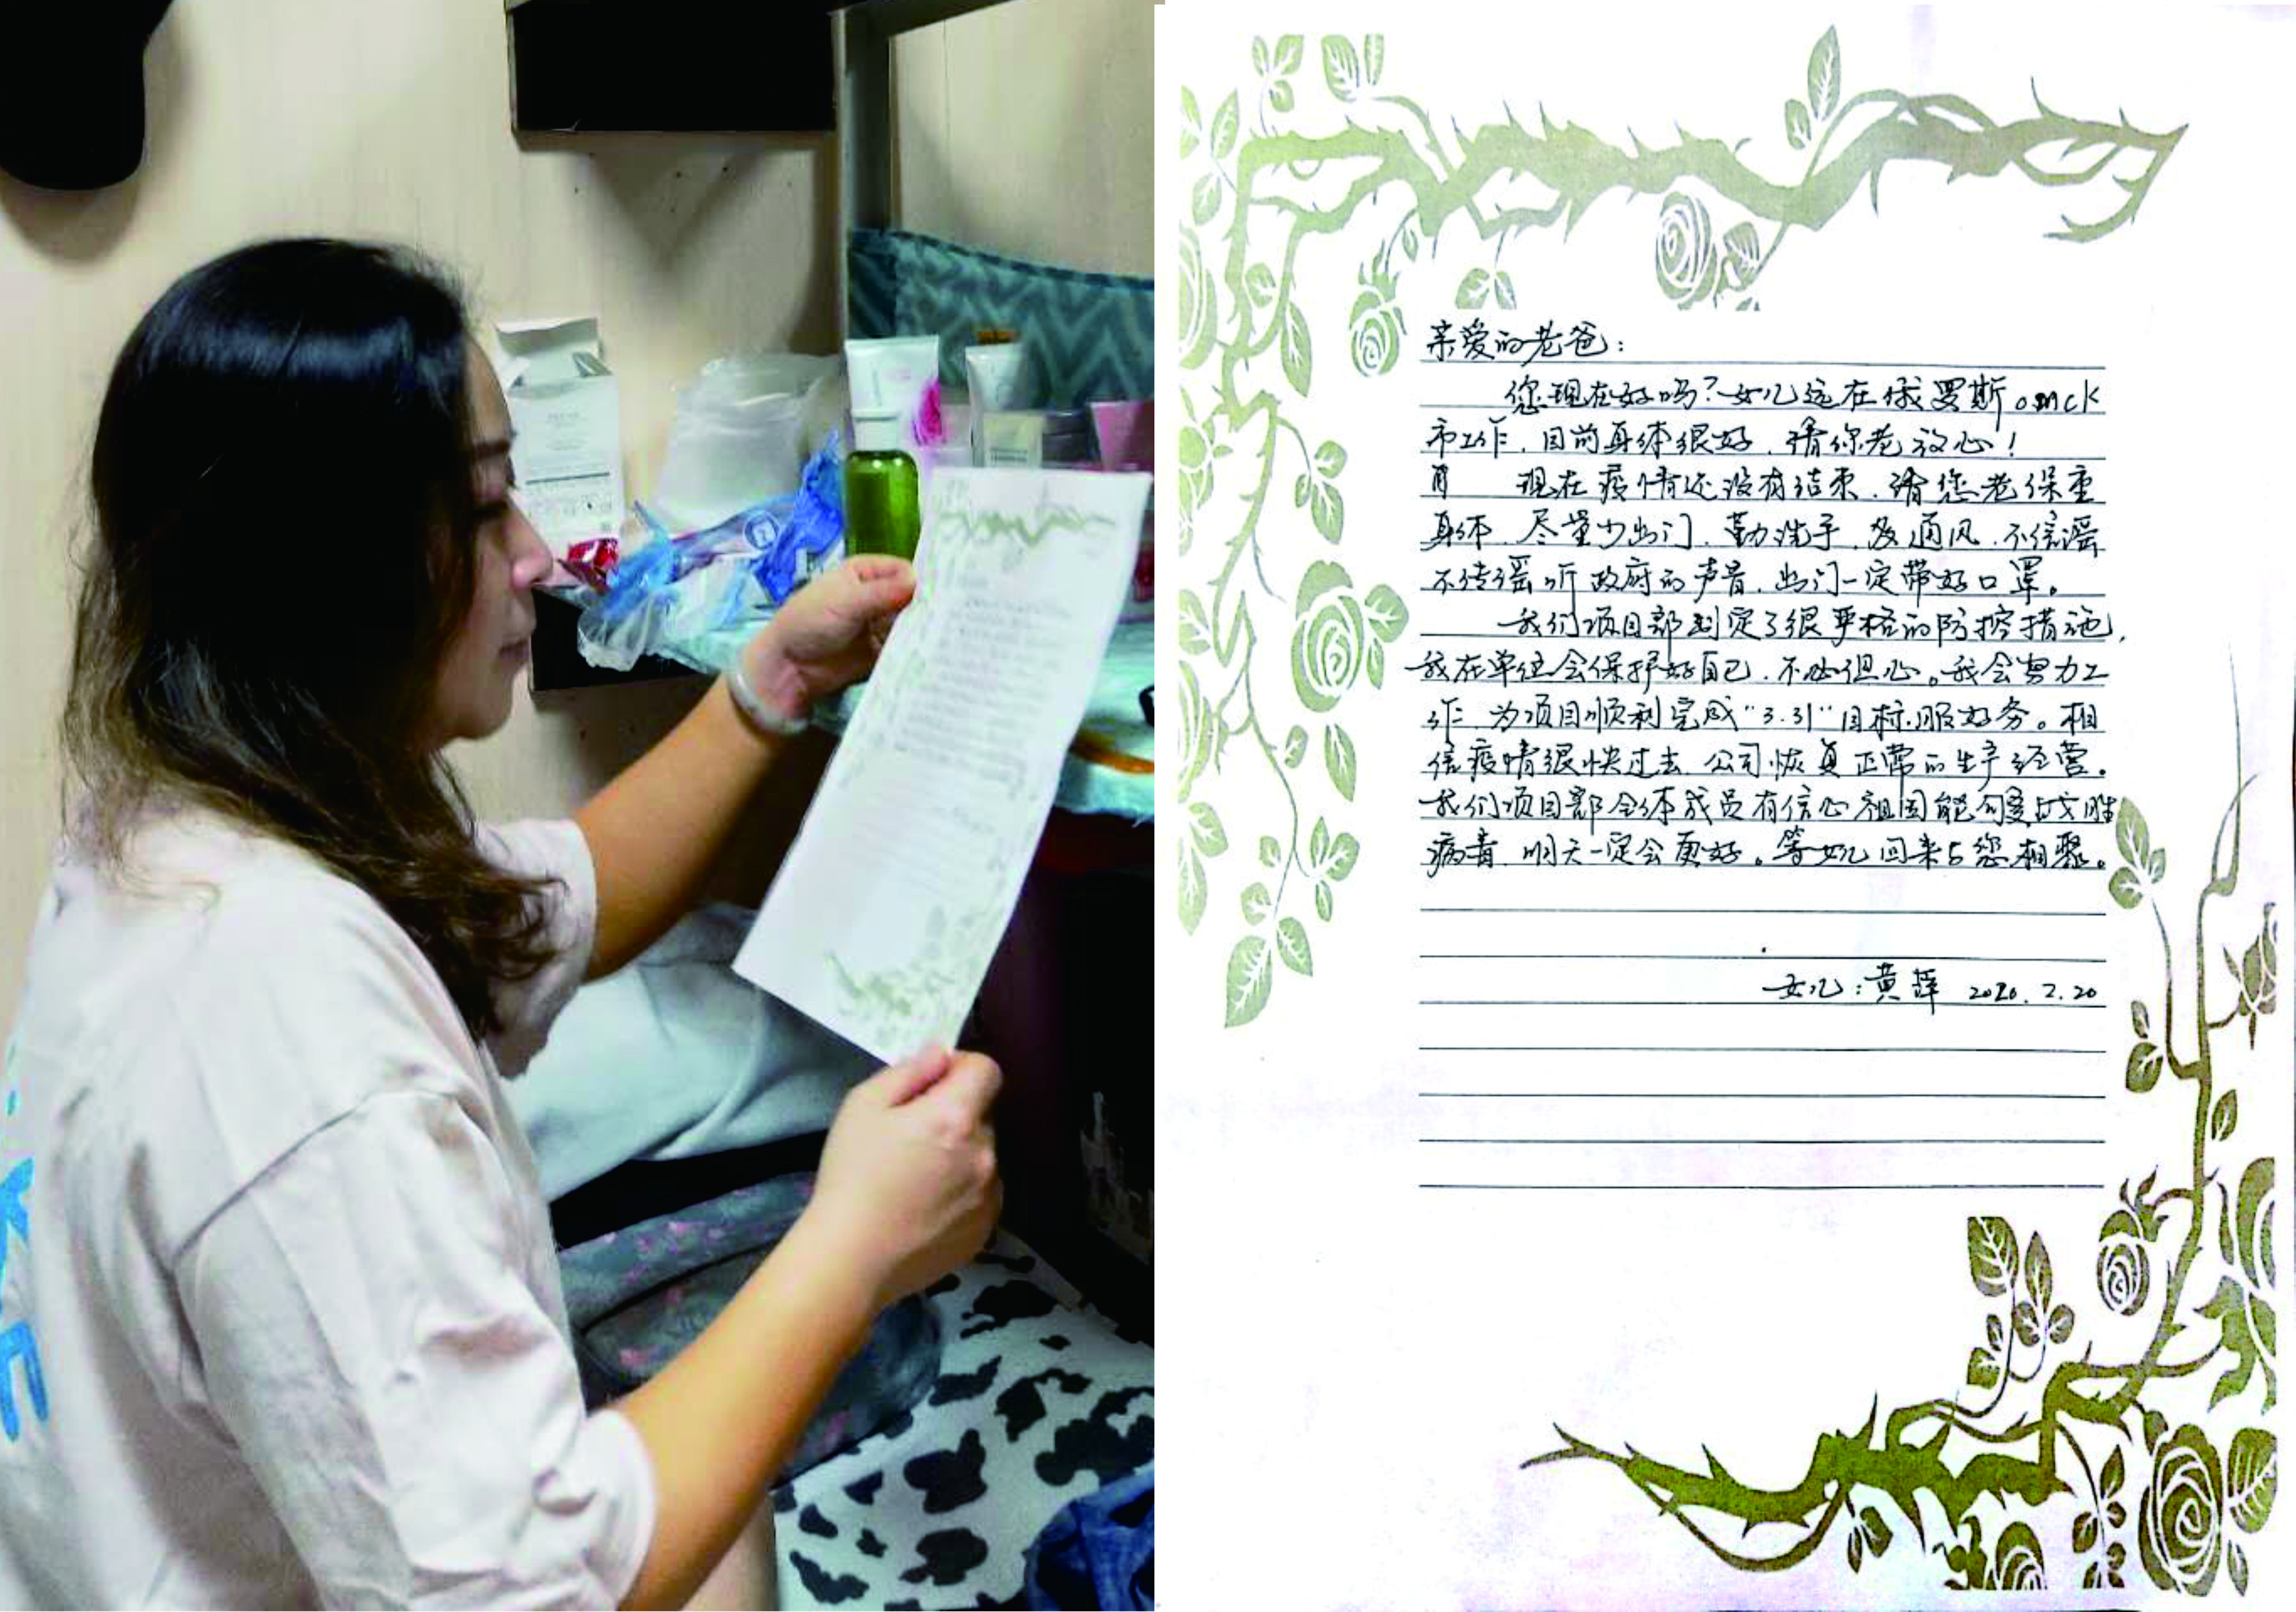 亲爱的老爸：
您现在好吗？女儿远在俄罗斯омск
市工作，目前身体很好，请你老放心！
现在疫情还没有结束，请您老保重
身体，尽量少出门，勤洗手，多通风，不信谣
不传谣听政府的声音，出门一定带好口罩。
我们项目部制定了很严格的防控措施，
我在单位会保护好自己，不必但心。我会努力工
作，为项目顺利完成“3.31”目标，服好务。相
信疫情很快过去，公司恢复正常的生产经营。
我们项目部全体成员有信心祖国能够战胜
病毒，明天一定会更好。等女儿回来与您相聚。
女儿：黄 2020.2.20